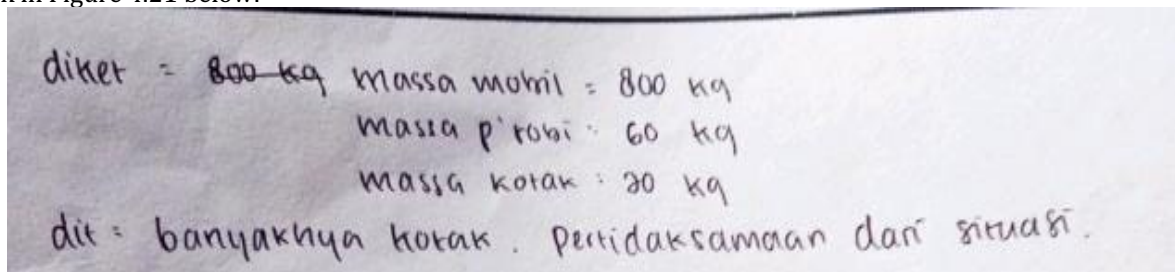 diket = 800 kg massa mobil = 800 kg
massa p'robi : 60 kg
massa kotak : 20 kg
dit : banyakhya kotak. pertidaksamaan dari situasi.